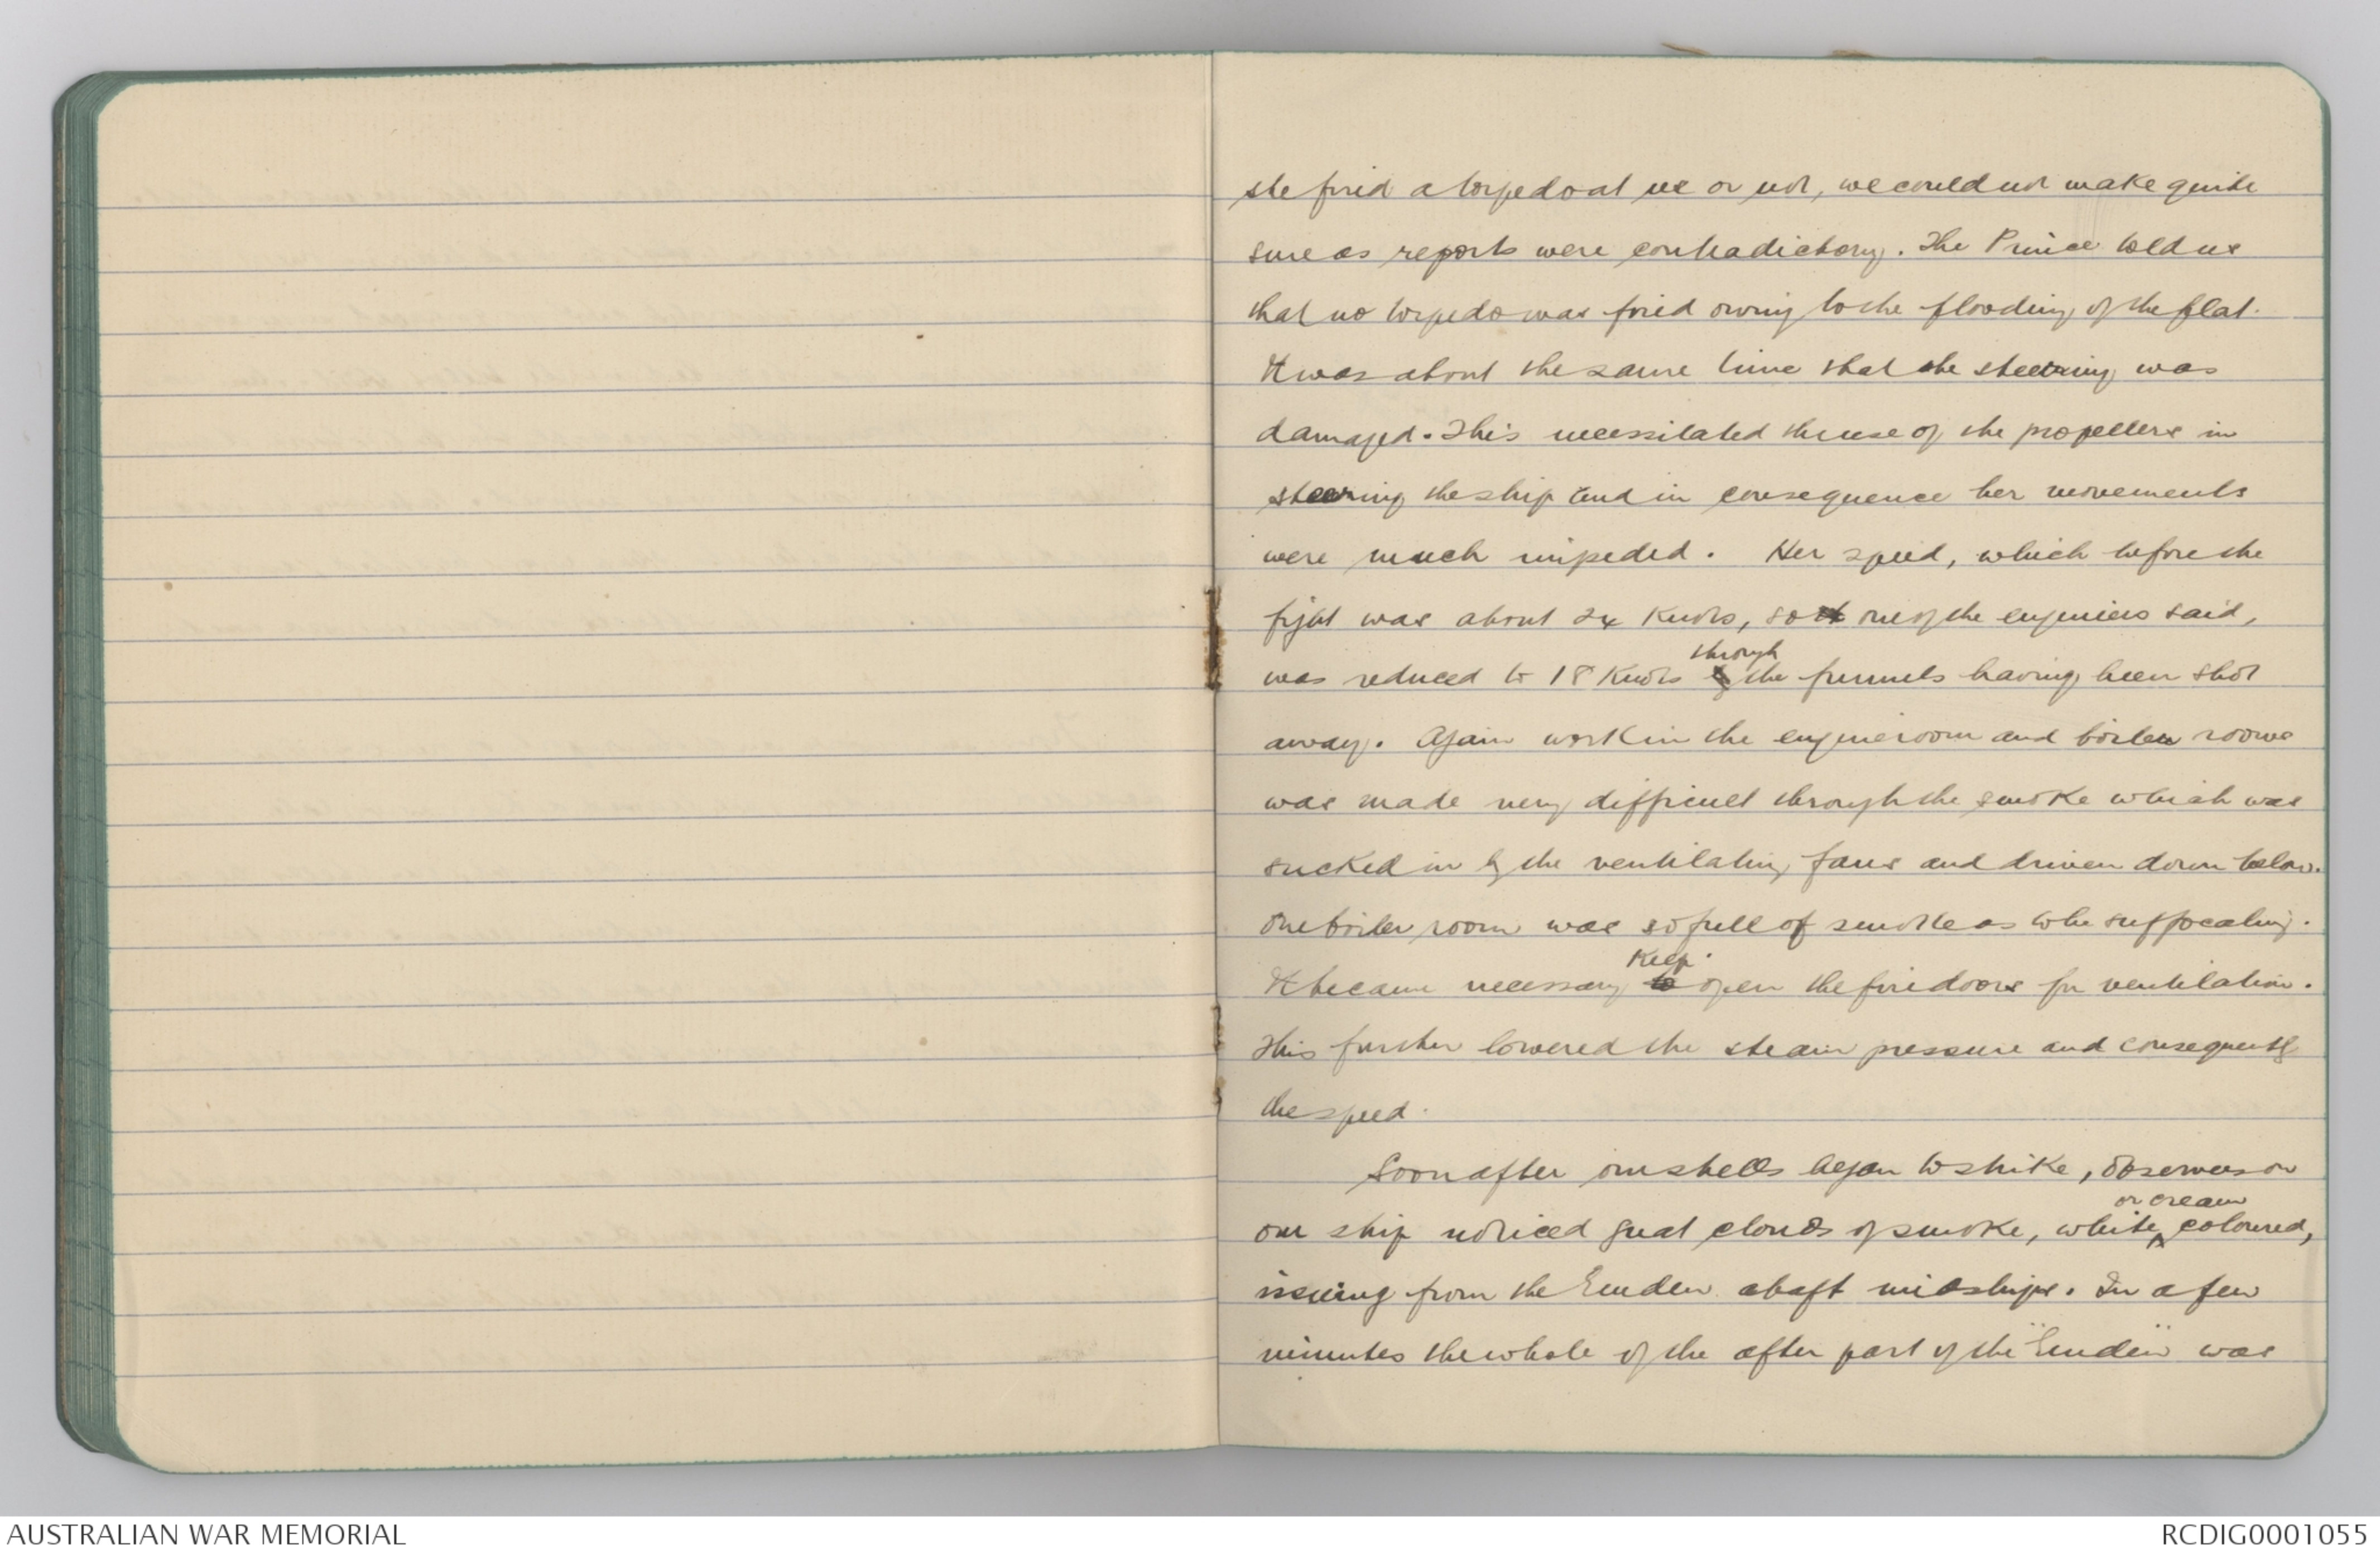 she fired a torpedo at us or not, we could not make quite
sure as reports were contradictory. The Prince told us
that no torpedo was fired owing to the flooding of the flat.
It was about the same time that the steering was
damaged. This necessitated the use of the propellers in
steering the ship and in consequence her movements
were much impeded. Her speed, which before the
fight was about 24 knots, so one of the engineers said,
through
was reduced to 18 Knots by the funnels having been shot
away. Again work in the engineroom and boiler rooms
was made very difficult through the smoke which was
sucked in by the ventilating fans and driven down below.
One boiler room was so full of smoke as to be suffocating.
Keep
It became necessary to open the fire doors for ventilation.
This further lowered the steam pressure and consequently
the speed.
Soon after our shells began to strike, observers on
or cream
our ship noticed great clouds of smoke, white coloured,
issuing from the Emden abaft midships. In a few
minutes the whole of the after part of the "Emden" was
AUSTRALIAN WAR MEMORIAL
RCDIG0001055